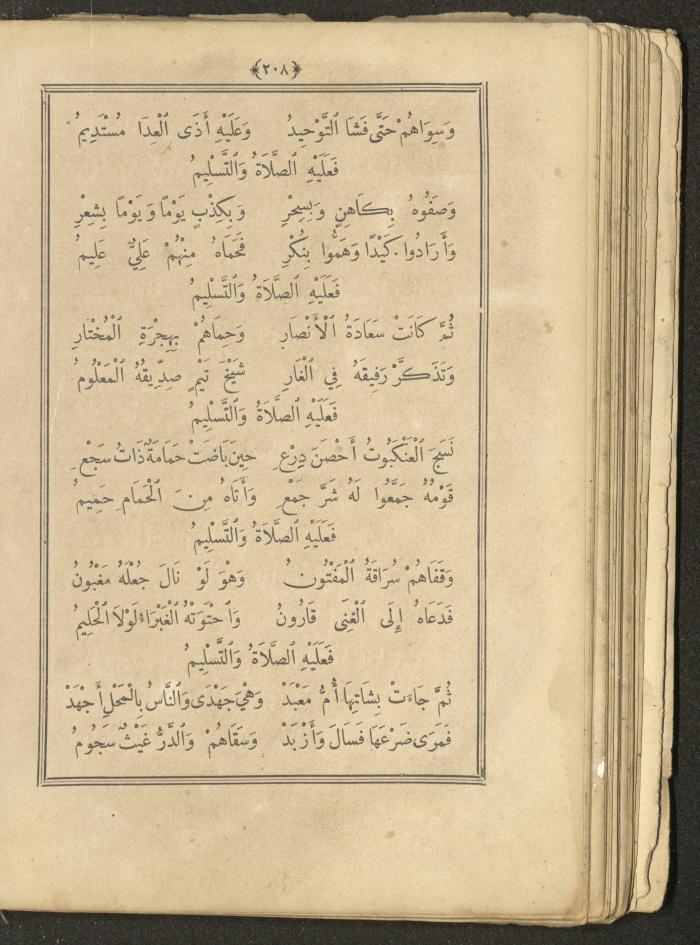 ﴿٢٠٨﴾
وَسِوَاهُمْ حَتَّى فَشَا التَّوْحِيدُ وَعَلَيْهِ أَذَى الْعِدَا مُسْتَدِيمُ
فَعَلَيْهِ الصَّلَاةُ وَالتَّسْلِيمُ
وَصَفُوهُ بِكَاهِنٍ وَبِسِحْرِ وَبِكِذْبٍ يَوْماً وَيَوْماً بِشِعْرِ
وَأَرَادُوا كَيْدًا وَهَمُّوا بِنُكْرِ فَحَمَاهُ مِنْهُمْ عَلِيٌّ عَلِيمُ
فَعَلَيْهِ الصَّلَاةُ وَالتَّسْلِيمُ
ثُمَّ كَانَتْ سَعَادَةُ الْأَنْصَارِ وَحِمَاهُمْ بِهِجْرَةِ الْمُخْتَارِ
وَتَذَكَّرْ رَفِيقَهُ فِي الْغَارِ شَيْخَ تَيْمٍ صِدِّيقُهُ الْمَعْلُومُ
فَعَلَيْهِ الصَّلَاةُ وَالتَّسْلِيمُ
نَسَجَ الْعَنْكَبُوتُ أَحْصَنَ دِرْعِ حِينَ بَاضَتْ حَمَامَةٌ ذَاتُ سَجْعِ
قَوْمُهُ جَمَّعُوا لَهُ شَرَّ جَمْعِ وَأَتَاهُ مِنَ الْحَمَامِ حَمِيمُ
فَعَلَيْهِ الصَّلَاةُ وَالتَّسْلِيمُ
وَقَفَاهُمْ سُرَاقَةُ الْمَفْتُونُ وَهْوَ لَوْ نَالَ جُعْلَهُ مَغْبُونُ
فَدَعَاهُ إِلَى الْغِنَى قَارُونُ وَاحْتَوَتْهُ الْغَبْرَاءُ لَوْلَا الْحَلِيمُ
فَعَلَيْهِ الصَّلَاةُ وَالتَّسْلِيمُ
ثُمَّ جَاءَتْ بِشَاتِهَا أُمُّ مَعْبَدْ وَهْيَ جَهْدَى وَالنَّاسُ بِالْمَحْلِ أَجْهَدْ
فَمَرَى ضَرْعَهَا فَسَالَ وَأَزْبَدْ وَسَقَاهُمْ وَالدَّرُّ غَيْثٌ سَجُومُ